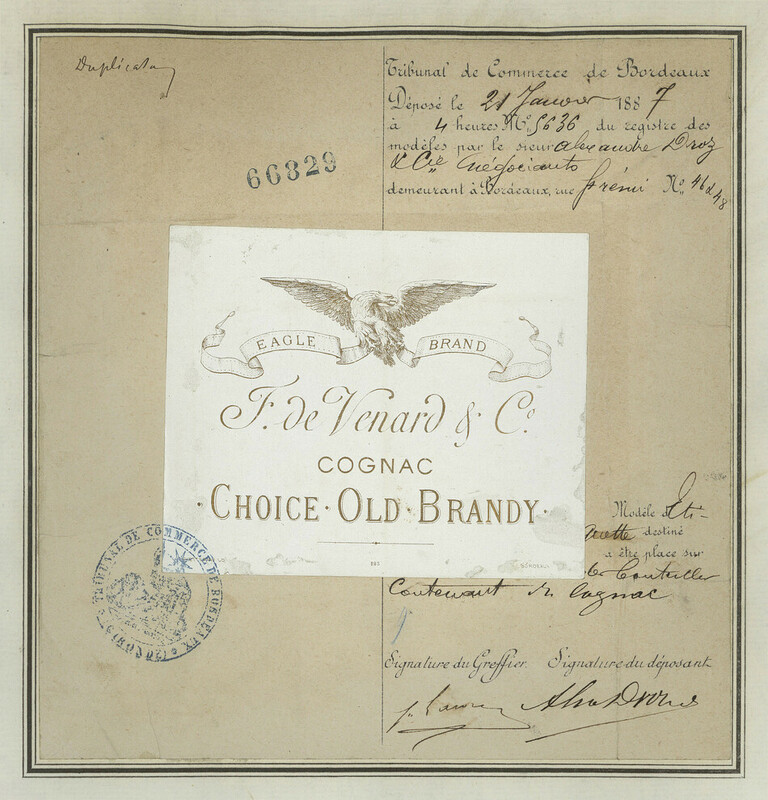 Duplicata
Tribunal de Commerce de Bordeaux
Déposé le 21 Janvier 1887
à 4 heures N° 5636 du registre des
modèles par le sieur Alexandre Droz
& Cie négociants
demeurant à Bordeaux, rue N° 46 & 48
66829
EAGLE BRAND
F. de Venard & Co
COGNAC
·CHOICE·OLD·BRANDY·
BORDEAUX
Modèle d'Eti-
quette destiné
à être place sur
des bouteilles
Contenant du Cognac
TRIBUNAL DE COMMERCE DE BORDEAUX
(GIRONDE)
Signature du Greffier. Signature du déposant